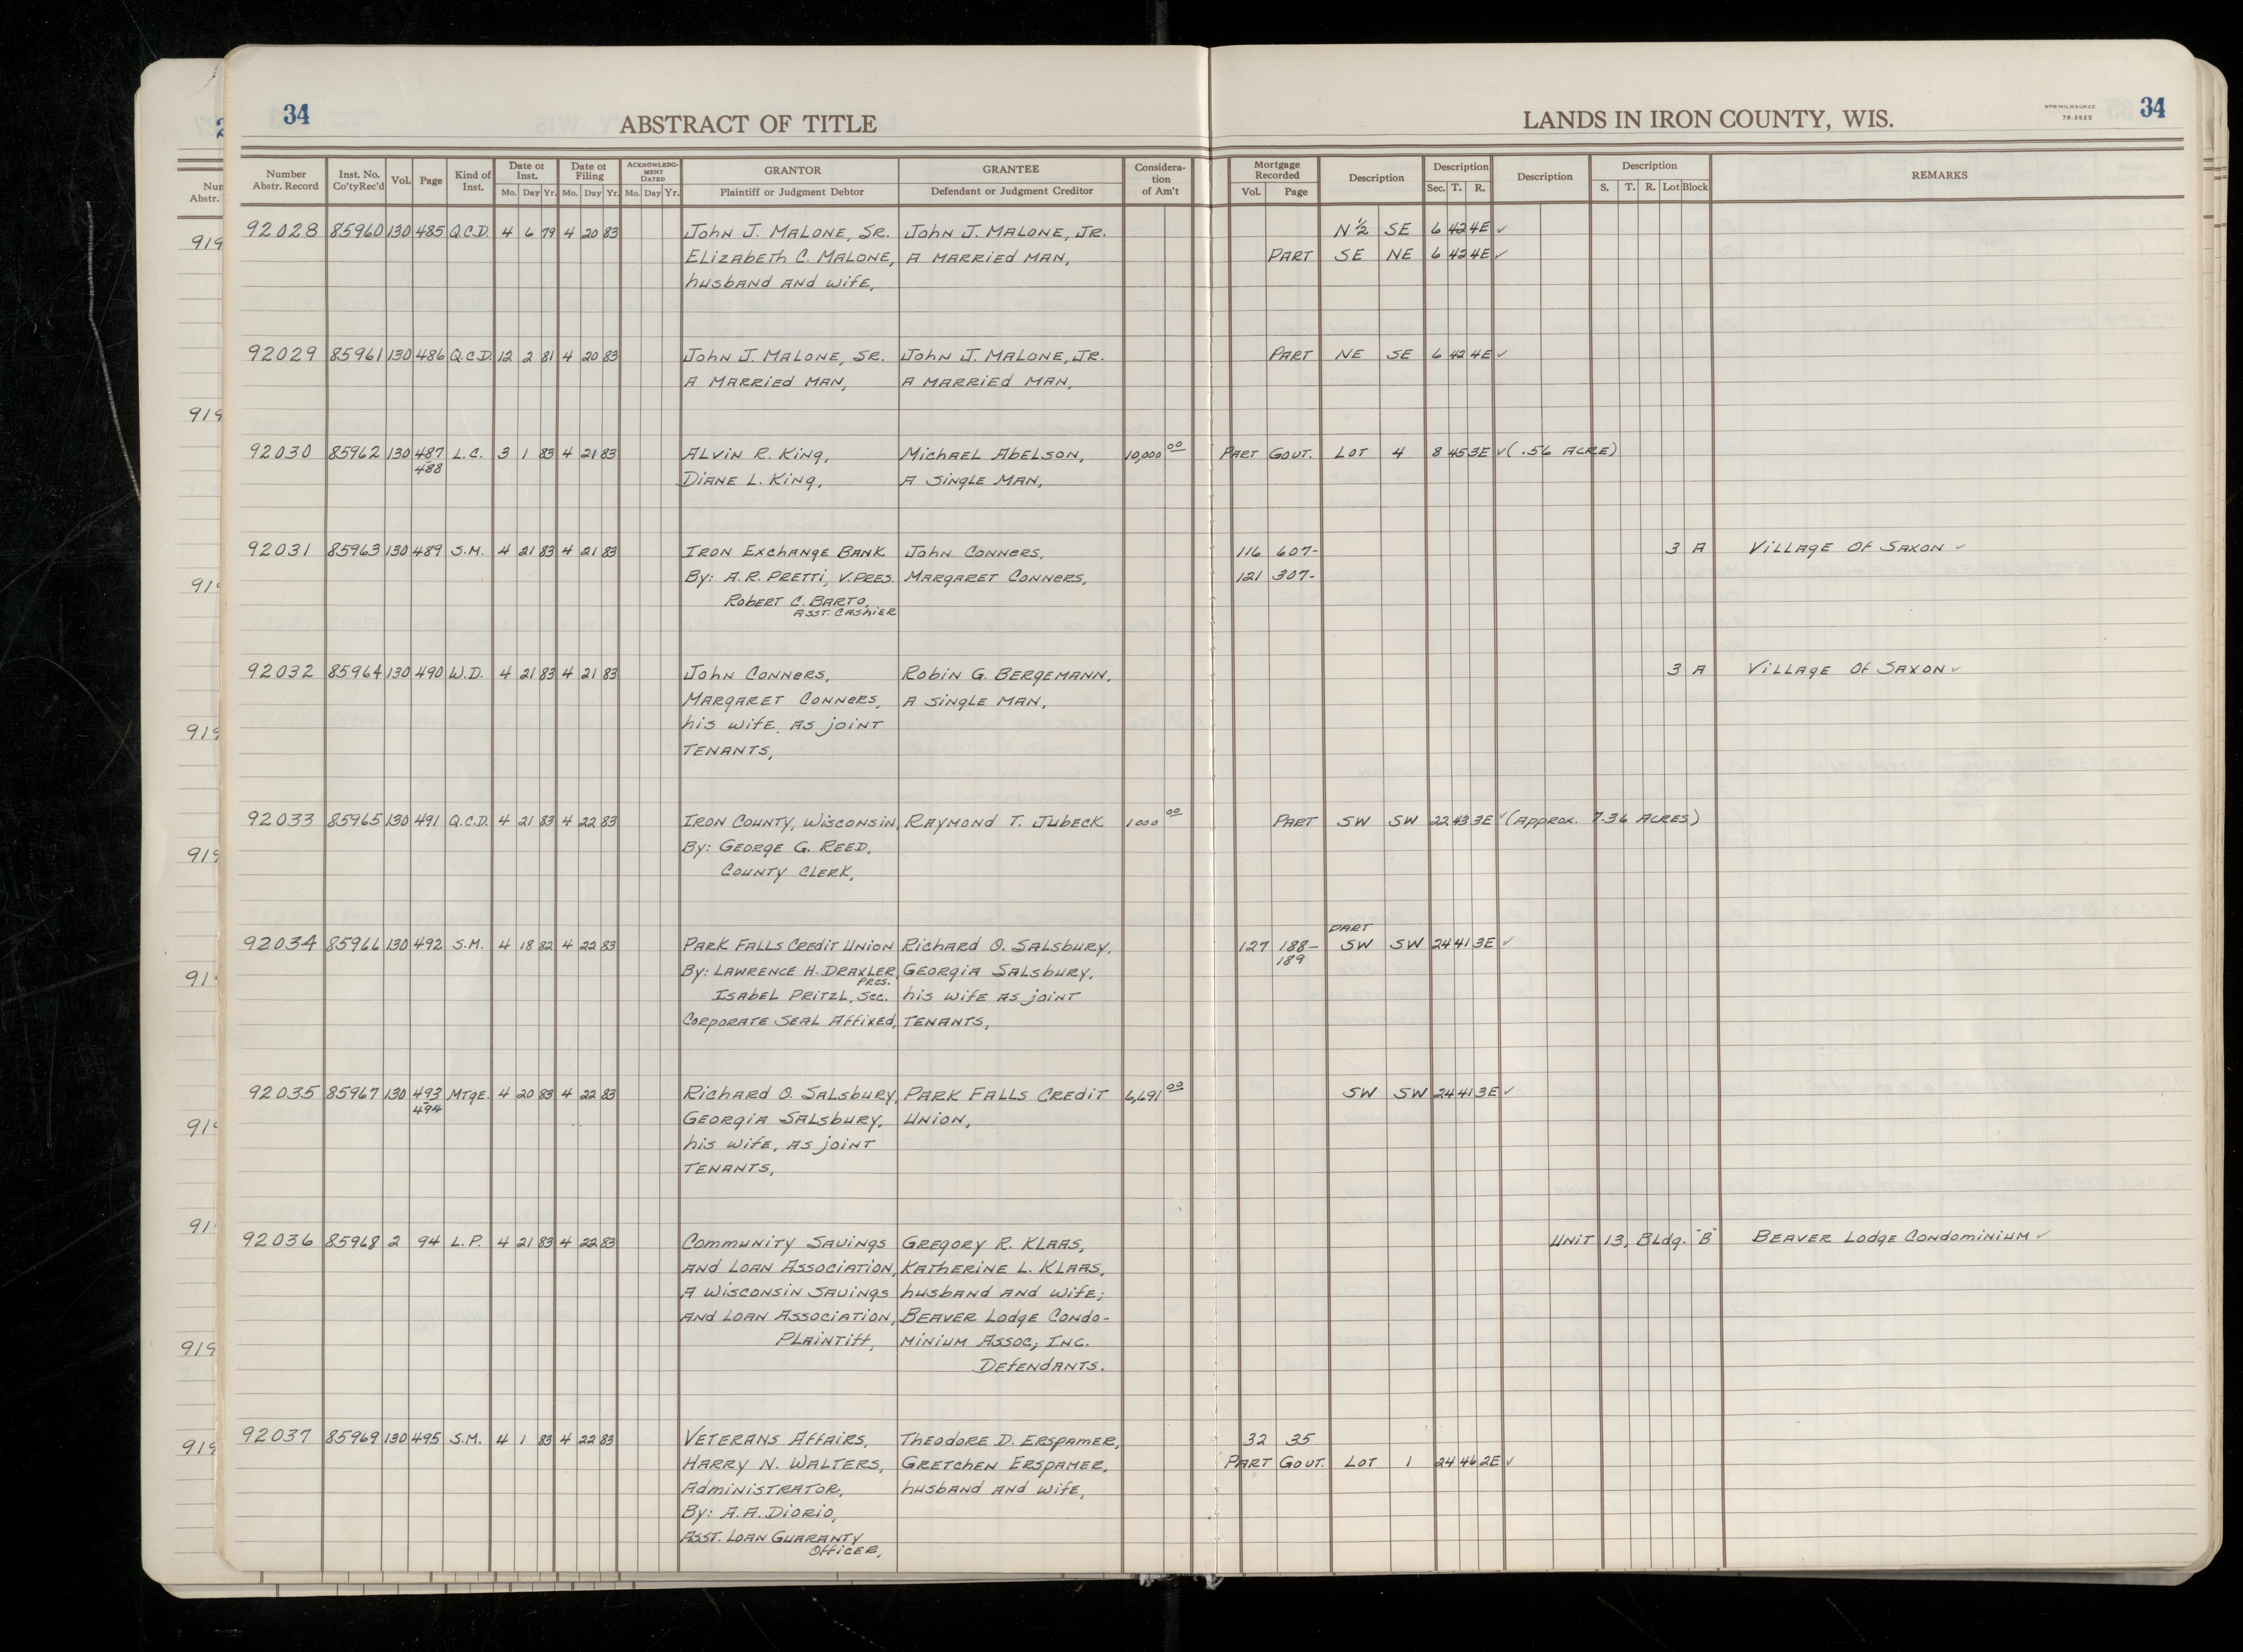 34
ABSTRACT OF TITLE
LANDS IN IRON COUNTY, WIS.
WPB-MILWAUKEE
78-3525
34
Number Abstr. Record | Inst. No. Co'tyRec'd | Vol. | Page | Kind of Inst. | Date of Inst. Mo. Day Yr. | Date of Filing Mo. Day Yr. | ACKNOWLEDG-MENT DATED Mo. Day Yr. | GRANTOR Plaintiff or Judgment Debtor | GRANTEE Defendant or Judgment Creditor | Considera-tion of Am't | Mortgage Recorded Vol. Page | Description | Description Sec. T. R. | Description | Description S. T. R. Lot Block | REMARKS
92028 85960 130 485 Q.C.D. 4 6 79 4 20 83 John J. Malone, Sr. John J. Malone, Jr. N½ SE 6 42 4E ✓
Elizabeth C. Malone, A married man, Part SE NE 6 42 4E ✓
husband and wife,
92029 85961 130 486 Q.C.D. 12 2 81 4 20 83 John J. Malone, Sr. John J. Malone, Jr. Part NE SE 6 42 4E ✓
A married man, A married man,
92030 85962 130 487 L.C. 3 1 83 4 21 83 Alvin R. King, Michael Abelson, 10,000 00 Part Gout. Lot 4 8 45 3E ✓ (.56 Acre)
488 Diane L. King, A single man,
92031 85963 130 489 S.M. 4 21 83 4 21 83 Iron Exchange Bank John Conners, 116 607- 3 A Village of Saxon ✓
By: A.R. Pretti, V.Pres. Margaret Conners, 121 307-
Robert C. Barto,
Asst. Cashier
92032 85964 130 490 W.D. 4 21 83 4 21 83 John Conners, Robin G. Bergemann, 3 A Village of Saxon ✓
Margaret Conners, A single man,
his wife, as joint
tenants,
92033 85965 130 491 Q.C.D. 4 21 83 4 22 83 Iron County, Wisconsin, Raymond T. Jubeck 1000 00 Part SW SW 22 43 3E ✓ (Approx. 7.36 Acres)
By: George G. Reed,
County Clerk,
Part
92034 85966 130 492 S.M. 4 18 82 4 22 83 Park Falls Credit Union Richard O. Salsbury, 127 188- SW SW 24 41 3E ✓
189
By: Lawrence H. Draxler, Georgia Salsbury,
Pres.
Isabel Pritzl, Sec. his wife as joint
Corporate Seal Affixed, tenants,
92035 85967 130 493 Mtge. 4 20 83 4 22 83 Richard O. Salsbury, Park Falls Credit 6,691 03 SW SW 24 41 3E ✓
494 Georgia Salsbury, Union,
his wife, as joint
tenants,
92036 85968 2 94 L.P. 4 21 83 4 22 83 Community Savings Gregory R. Klaas, Unit 13, Bldg. "B" Beaver Lodge Condominium ✓
and Loan Association, Katherine L. Klaas,
A Wisconsin Savings husband and wife;
and Loan Association, Beaver Lodge Condo-
Plaintiff, minium Assoc; Inc.
Defendants.
92037 85969 130 495 S.M. 4 1 83 4 22 83 Veterans Affairs, Theodore D. Erspamer, 32 35
Harry N. Walters, Gretchen Erspamer, Part Gout. Lot 1 24 46 2E ✓
Administrator, husband and wife,
By: A.A. Diorio,
Asst. Loan Guaranty
Officer,